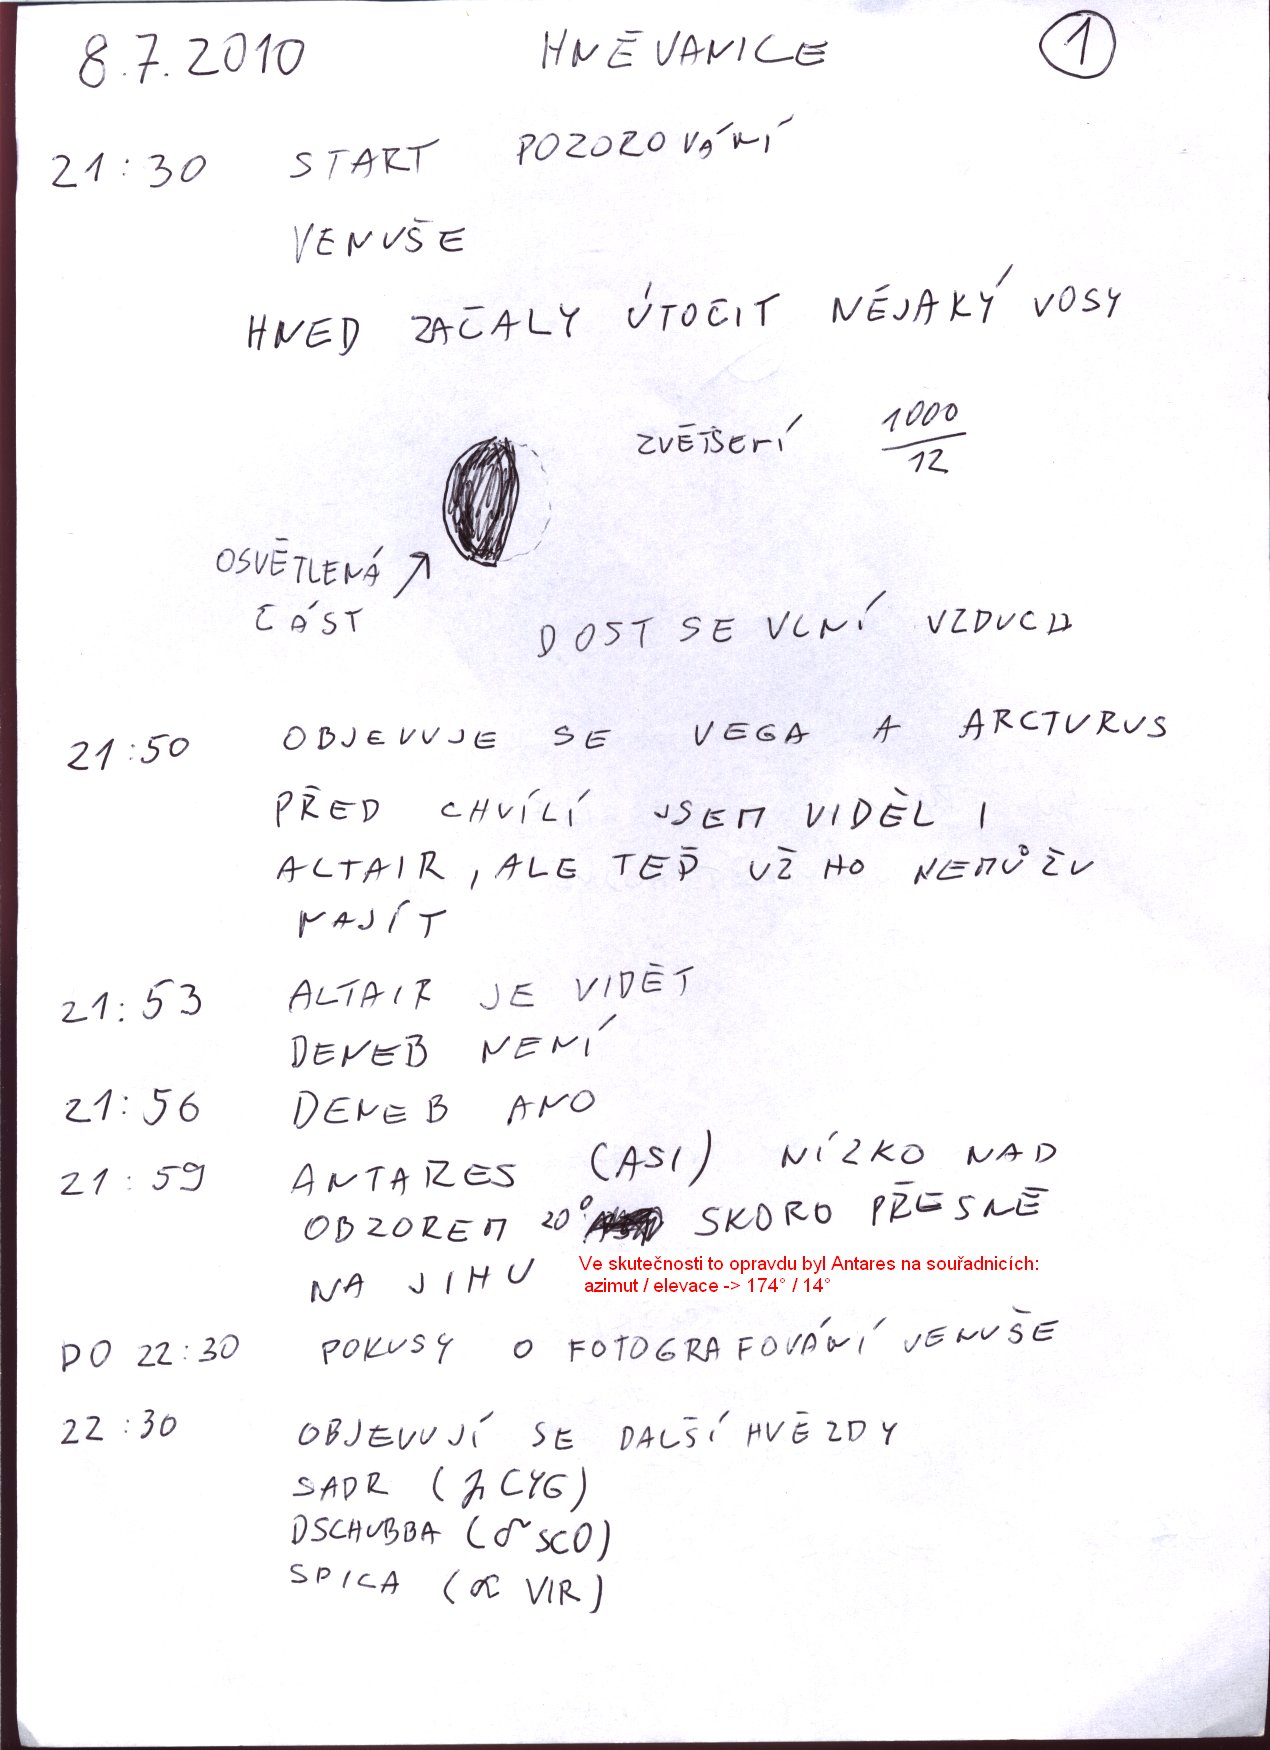 8.7.2010 HNĚVANICE 1
21:30 START POZOROVÁNÍ
VENUŠE
HNED ZAČALY ÚTOČIT NĚJAKÝ VOSY
ZVĚTŠENÍ 1000/12
OSVĚTLENÁ
ČÁST
DOST SE VLNÍ VZDUCH
21:50 OBJEVUJE SE VEGA A ARCTURUS
PŘED CHVÍLÍ JSEM VIDĚL I
ALTAIR, ALE TEĎ UŽ HO NEMŮŽU
NAJÍT
21:53 ALTAIR JE VIDĚT
DENEB NENÍ
21:56 DENEB ANO
21:59 ANTARES (ASI) NÍZKO NAD
OBZOREM 20° SKORO PŘESNĚ
NA JIHU
Ve skutečnosti to opravdu byl Antares na souřadnicích:
azimut / elevace -> 174° / 14°
DO 22:30 POKUSY O FOTOGRAFOVÁNÍ VENUŠE
22:30 OBJEVUJÍ SE DALŠÍ HVĚZDY
SADR (γ CYG)
DSCHUBBA (δ SCO)
SPICA (α VIR)